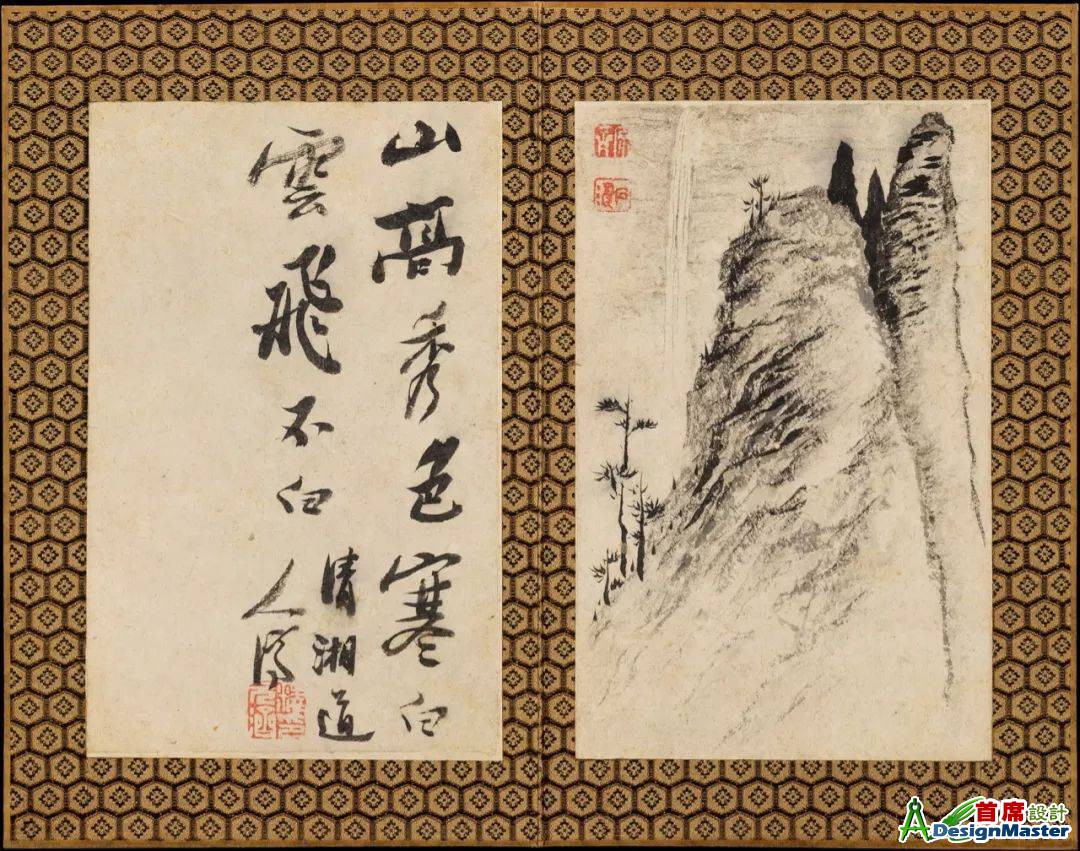 山髙秀色寒白
雲飛不白
清湘道
人濟
首席設計
DesignMaster